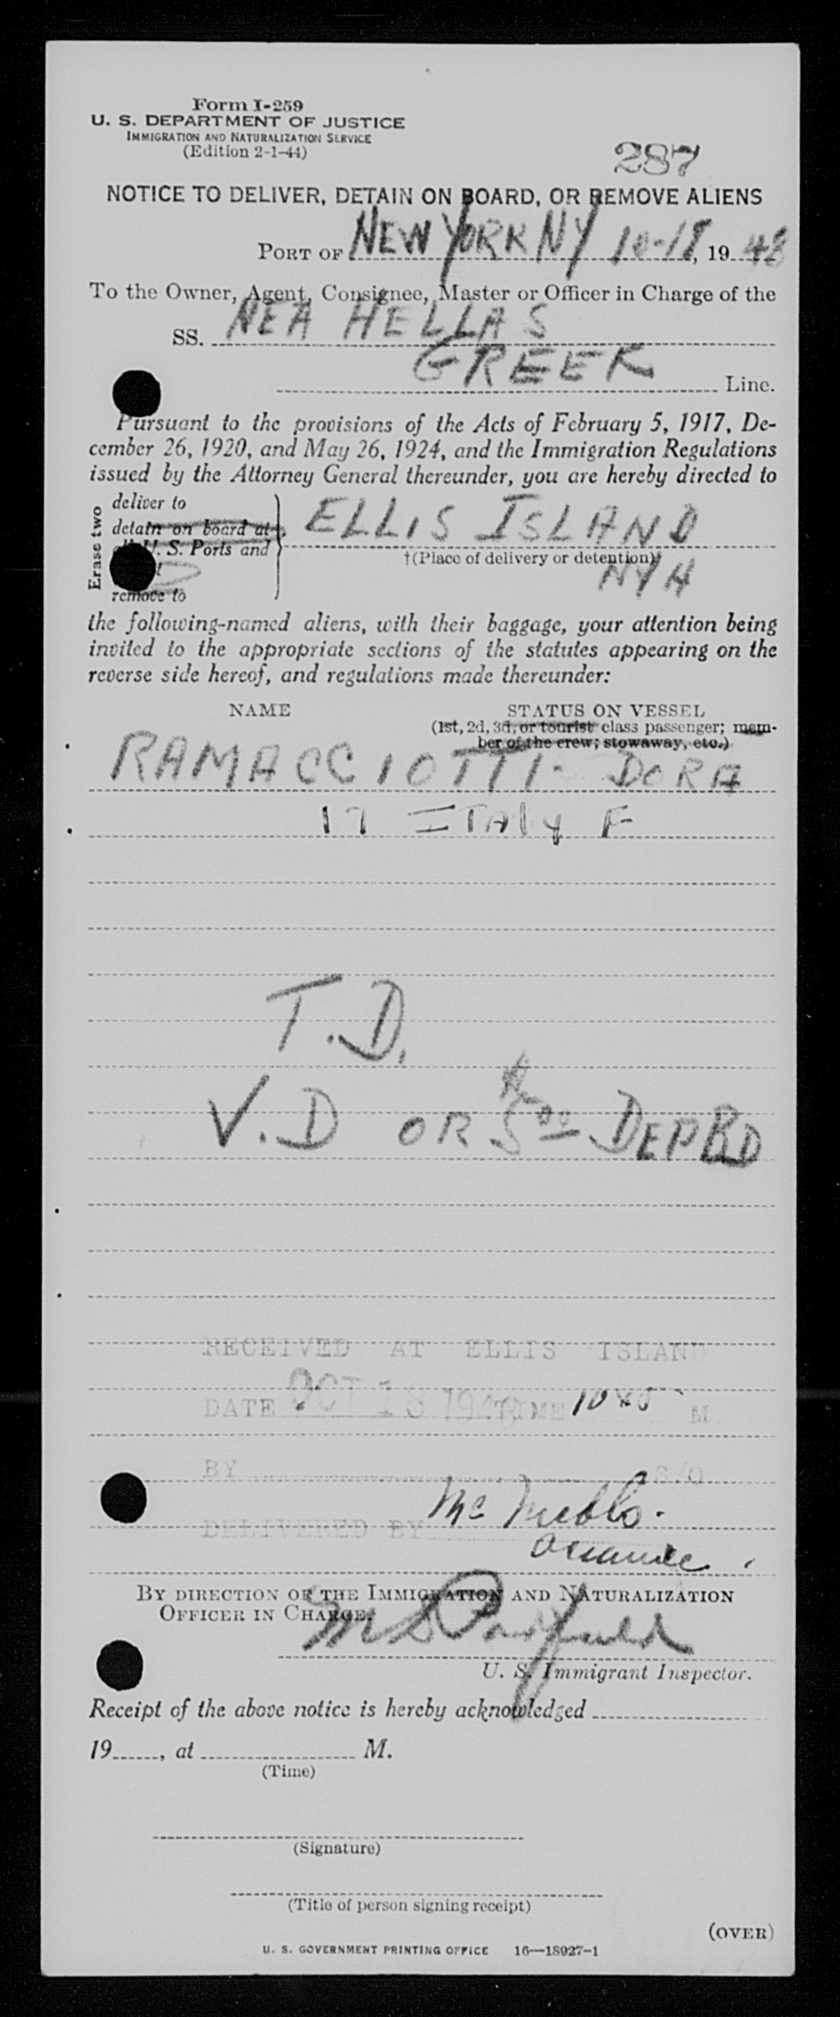 Form I-259
U. S. DEPARTMENT OF JUSTICE
IMMIGRATION AND NATURALIZATION SERVICE
(Edition 2-1-44)
287
NOTICE TO DELIVER, DETAIN ON BOARD, OR REMOVE ALIENS
PORT OF NEW YORK NY 10-18, 1948
To the Owner, Agent, Consignee, Master or Officer in Charge of the
SS. NEA HELLAS
GREEK Line.
Pursuant to the provisions of the Acts of February 5, 1917, De-
cember 26, 1920, and May 26, 1924, and the Immigration Regulations
issued by the Attorney General thereunder, you are hereby directed to
Erase two
deliver to
detain on board at
U. S. Ports and
remove to
ELLIS ISLAND
†(Place of delivery or detention)
NYH
the following-named aliens, with their baggage, your attention being
invited to the appropriate sections of the statutes appearing on the
reverse side hereof, and regulations made thereunder:
NAME STATUS ON VESSEL
(1st, 2d, 3d, or tourist class passenger; mem-
ber of the crew; stowaway, etc.)
RAMACCIOTTI - DORA
17 ITALY F
T.D.
V.D OR 500 DEP BD
RECEIVED AT ELLIS ISLAND
DATE OCT 18 1948 TIME 1045 M
BY S/O
DELIVERED BY
BY DIRECTION OF THE IMMIGRATION AND NATURALIZATION
OFFICER IN CHARGE.
U. S. Immigrant Inspector.
Receipt of the above notice is hereby acknowledged
19, at M.
(Time)
(Signature)
(Title of person signing receipt)
(OVER)
U. S. GOVERNMENT PRINTING OFFICE 16—18927-1